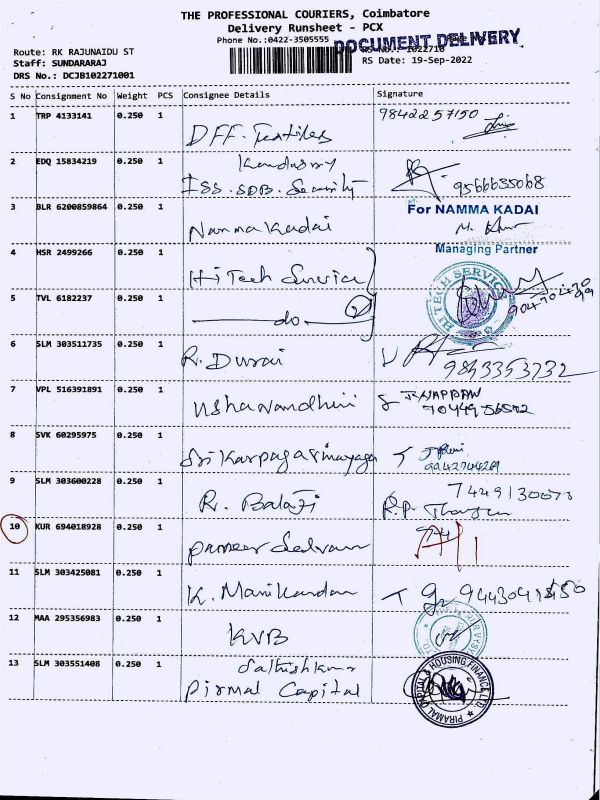 THE PROFESSIONAL COURIERS, Coimbatore
Delivery Runsheet - PCX
Phone No.:0422-3505555
DOCUMENT DELIVERY
Route: RK RAJUNAIDU ST
Staff: SUNDARARAJ
DRS No.: DCJB102271001
RS No.: 1022710
RS Date: 19-Sep-2022
S No Consignment No Weight PCS Consignee Details Signature
1 TRP 4133141 0.250 1 DFF. Textiles 9842257150
2 EDQ 15834219 0.250 1 Kandasmy
ISS. SDB. Security 9566635068
3 BLR 6200859864 0.250 1 Namma Kadai For NAMMA KADAI
Managing Partner
4 HSR 2499266 0.250 1 Hi Tech Service HI TECH SERVICE
5 TVL 6182237 0.250 1 do 2
6 SLM 303511735 0.250 1 R. Durai 9843353732
7 VPL 516391891 0.250 1 Ushanandhini
8 SVK 60295975 0.250 1 Sri Karpagavinayaga
9 SLM 303600228 0.250 1 R. Balaji
10 KUR 694018928 0.250 1
11 SLM 303425081 0.250 1 K. Manikandan
12 MAA 295356983 0.250 1 KVB
13 SLM 303551408 0.250 1 Sathishkumar
Pirmal Capital PIRAMAL CAPITAL & HOUSING FINANCE LTD.